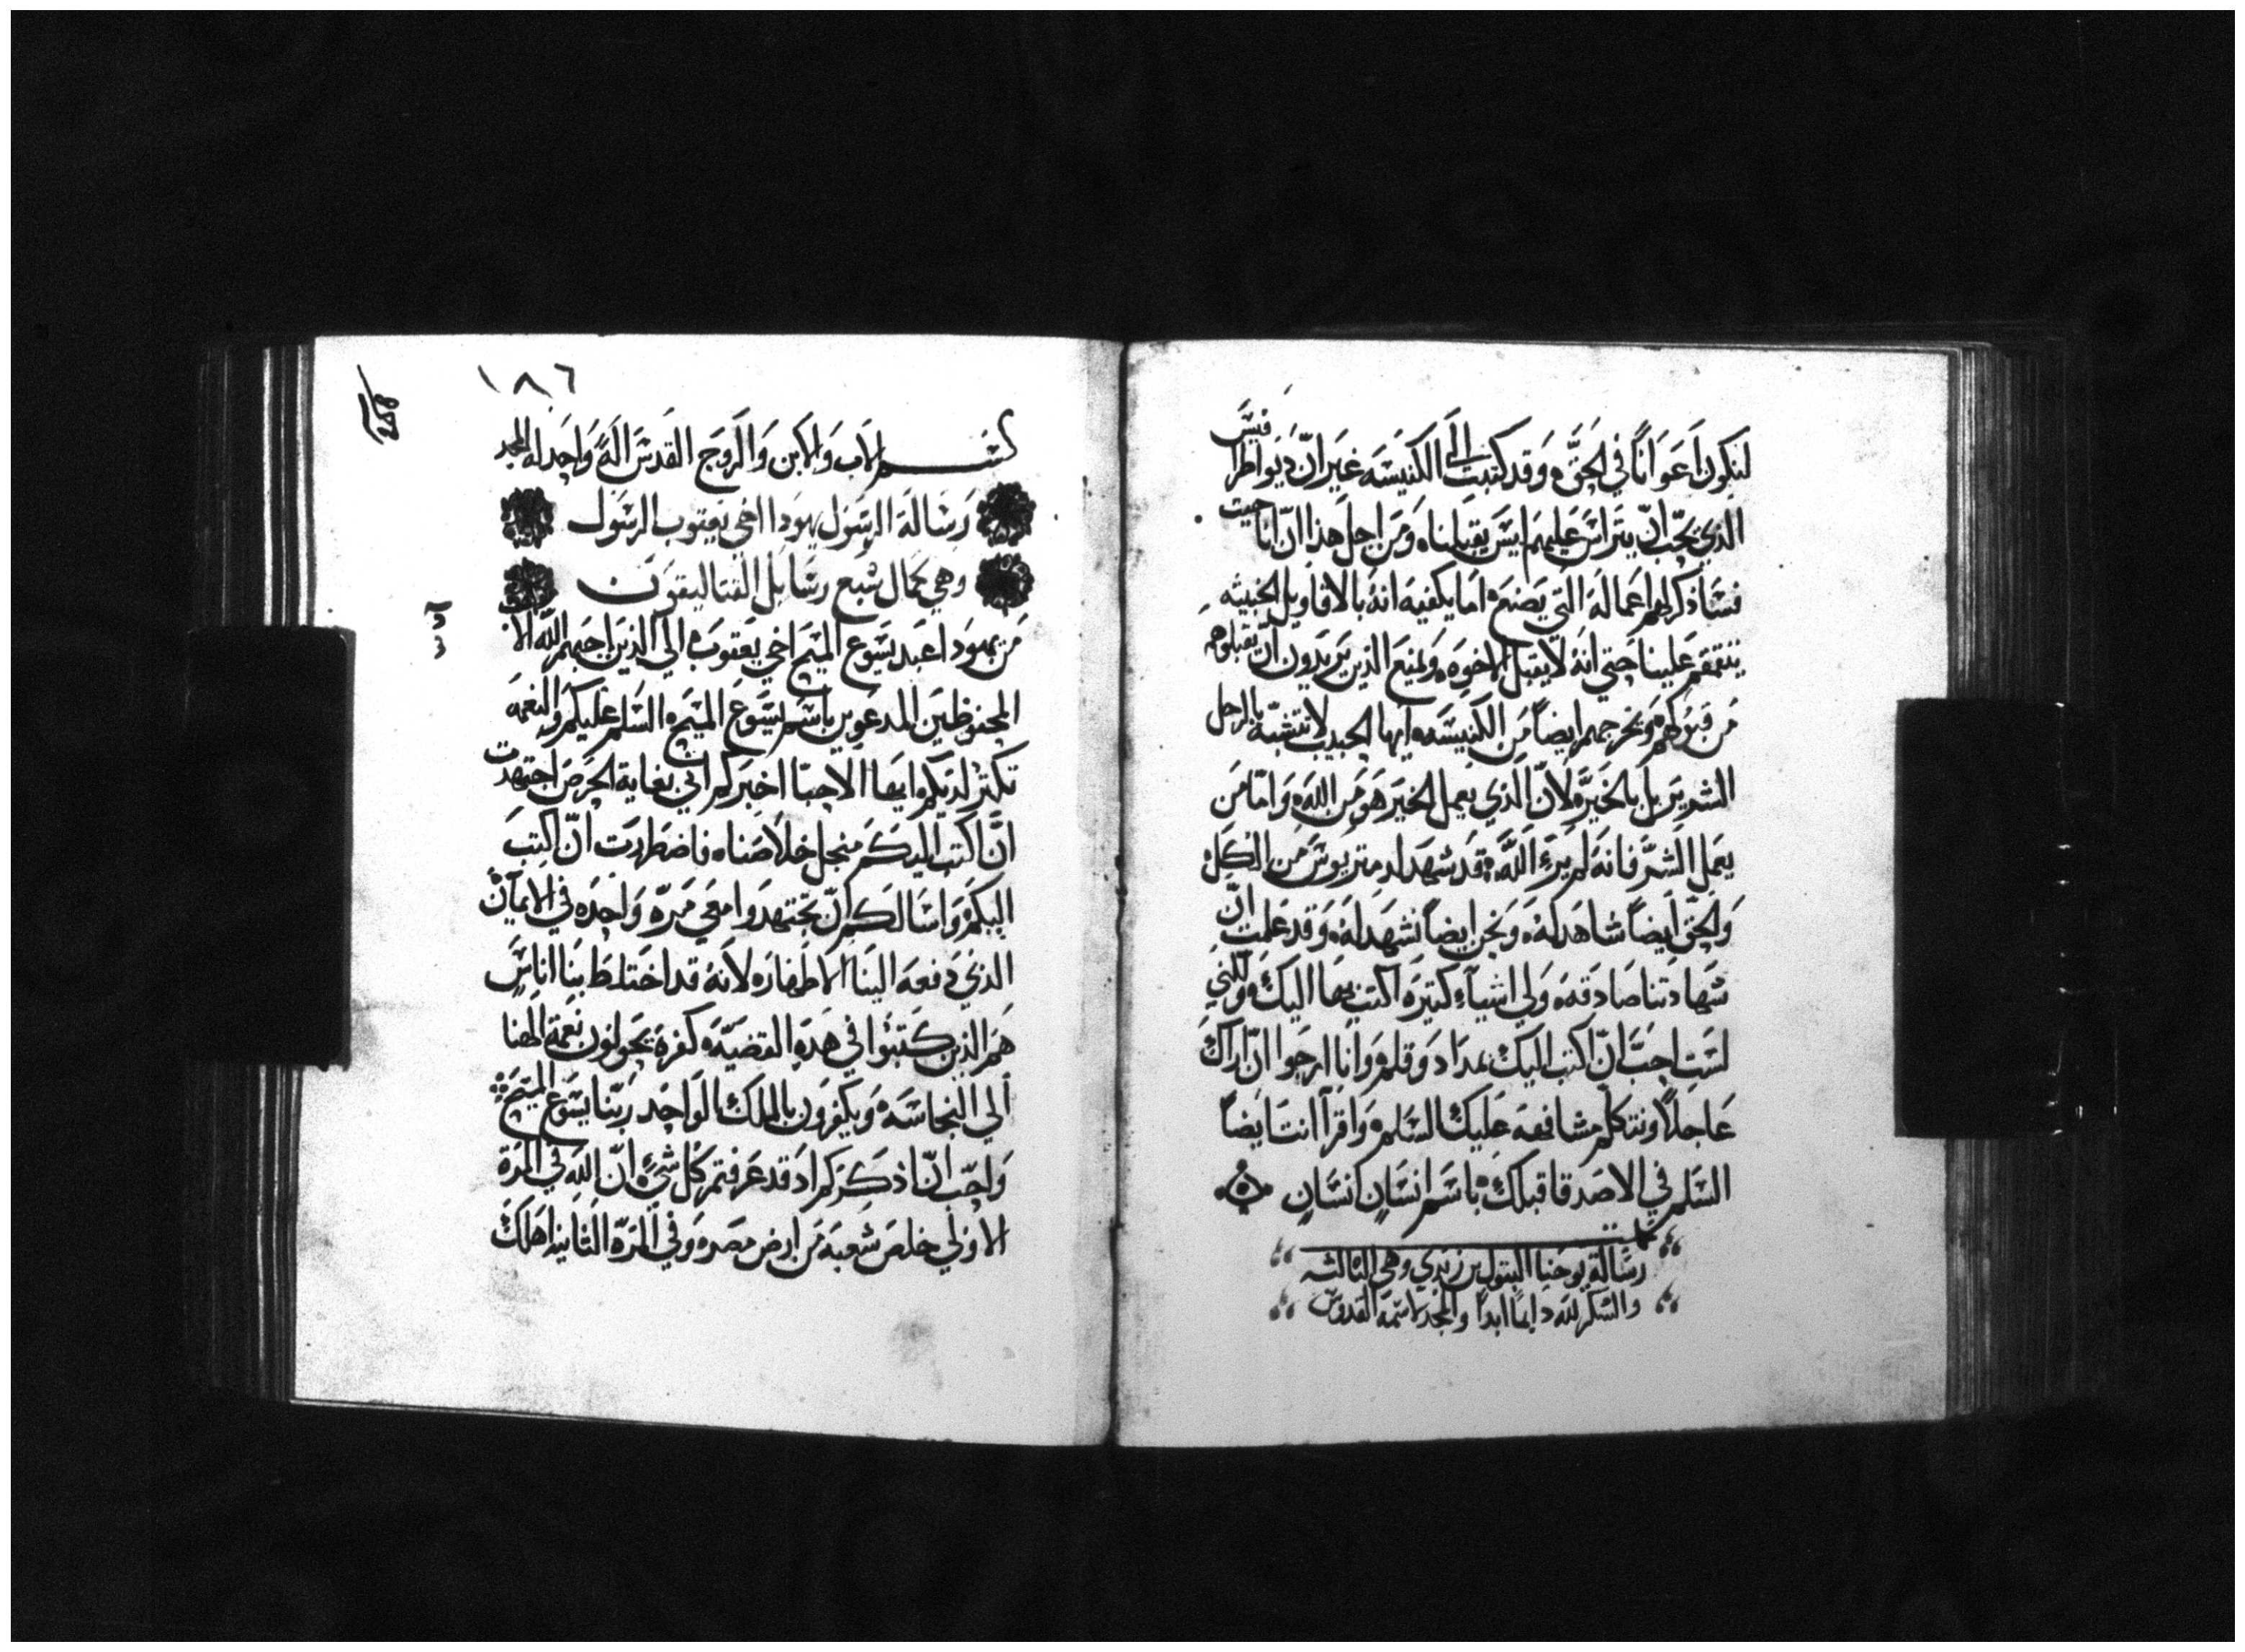 لنكون اعوانًا في الحق وقد كتبت الى الكنيسه غير ان ديوطرافيس
الذي يحب ان يتراس عليهم ليس يقبلنا ومن اجل هذا ان انا جيت
فساذكر لهم اعماله التي يصنع اما يكفيه انه بالاقاويل الخبيثه
ينتقم علينا حتي انه لا يقبل الاخوه ويمنع الذين يريدون ان يقبلوهم
من قبولهم ويخرجهم ايضاً من الكنيسه ايها الحبيب لا تتشبه بالرجل
الشرير بل بالخير لان الذي يعمل الخير هو من الله واما من
يعمل الشر فانه لم يرَ الله قد شهد لديمتريوس من الكل
والحق ايضاً شاهد له ونحن ايضاً نشهد له وقد علمت ان
شهادتنا صادقه ولي اشياء كتيره اكتب بها اليك ولكني
لست احب ان اكتب اليك بمداد وقلم وانا ارجوا ان اراك
عاجلاً ونتكلم مشافهه عليك السلم واقرا انت ايضاً
السلم في الاصدقا قبلك باسم انسان انسان
تمت
رسالة يوحنا البتول بن زبدي وهي الثالثه
والشكر لله دايماً ابداً والمجد لاسمه القدوس
١٨٦
بسم الاب والابن والروح القدس الهً واحد له المجد
رسالة الرسول يهودا اخي يعقوب الرسول
وهي كمال سبع رسايل القتاليقون
من يهودا عبد يسوع المسيح اخي يعقوب الي الذين احبهم الله الاب
المحفوظين المدعوين باسم يسوع المسيح السلم عليكم والنعمه
تكتر لديكم ايها الاحبا اخبركم اني بغاية الحرص اجتهدت
ان اكتب اليكم منجل خلاصنا فاضطررت ان اكتب
اليكم واسالكم ان تجتهدوا معي مره واحده في الايمان
الذي دفعه الينا الاطهار لانه قد اختلط بنا اناس
هم الذين كتبوا في هذه القضيه كفره يحولون نعمة الهنا
الي النجاسه ويكفرون بالملك الواحد ربنا يسوع المسيح
واحب ان اذكركم اد قد عرفتم كل شي ان الله في المرة
الاولي خلص شعبه من ارض مصر وفي المرة الثانيه اهلك